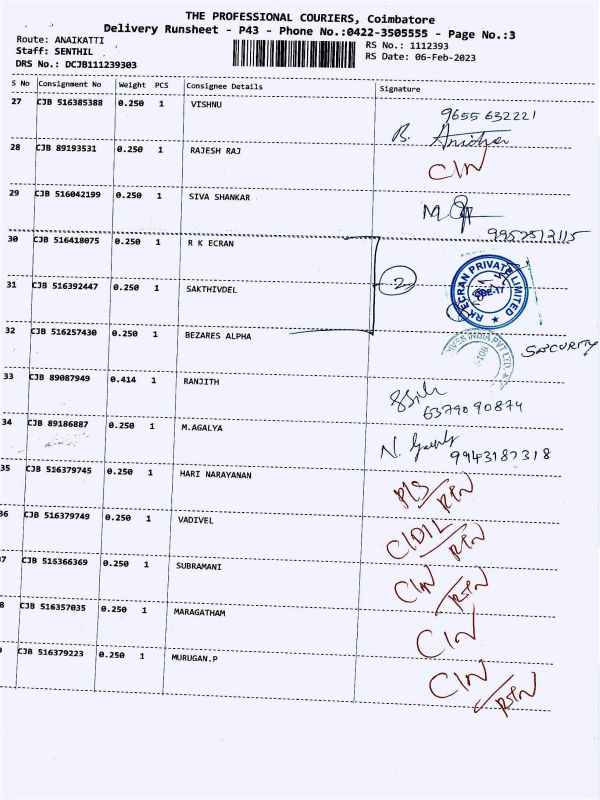 THE PROFESSIONAL COURIERS, Coimbatore
Delivery Runsheet - P43 - Phone No.:0422-3505555 - Page No.:3
Route: ANAIKATTI
RS No.: 1112393
Staff: SENTHIL
RS Date: 06-Feb-2023
DRS No.: DCJB111239303
S No Consignment No Weight PCS Consignee Details Signature
27 CJB 516385388 0.250 1 VISHNU 9655 632221
B.
28 CJB 89193531 0.250 1 RAJESH RAJ C/N
29 CJB 516042199 0.250 1 SIVA SHANKAR
9952512115
30 CJB 516418075 0.250 1 R K ECRAN
2
RK ECRAN PRIVATE LIMITED
31 CJB 516392447 0.250 1 SAKTHIVDEL
32 CJB 516257430 0.250 1 BEZARES ALPHA
INDIA PVT LTD
SECURITY
33 CJB 89087949 0.414 1 RANJITH
6379090874
34 CJB 89186887 0.250 1 M.AGALYA N.
9943187318
35 CJB 516379745 0.250 1 HARI NARAYANAN P/S RTN
36 CJB 516379749 0.250 1 VADIVEL C/D/L RTN
7 CJB 516366369 0.250 1 SUBRAMANI C/N RTN
8 CJB 516357035 0.250 1 MARAGATHAM C/N
9 CJB 516379223 0.250 1 MURUGAN.P C/N RTN